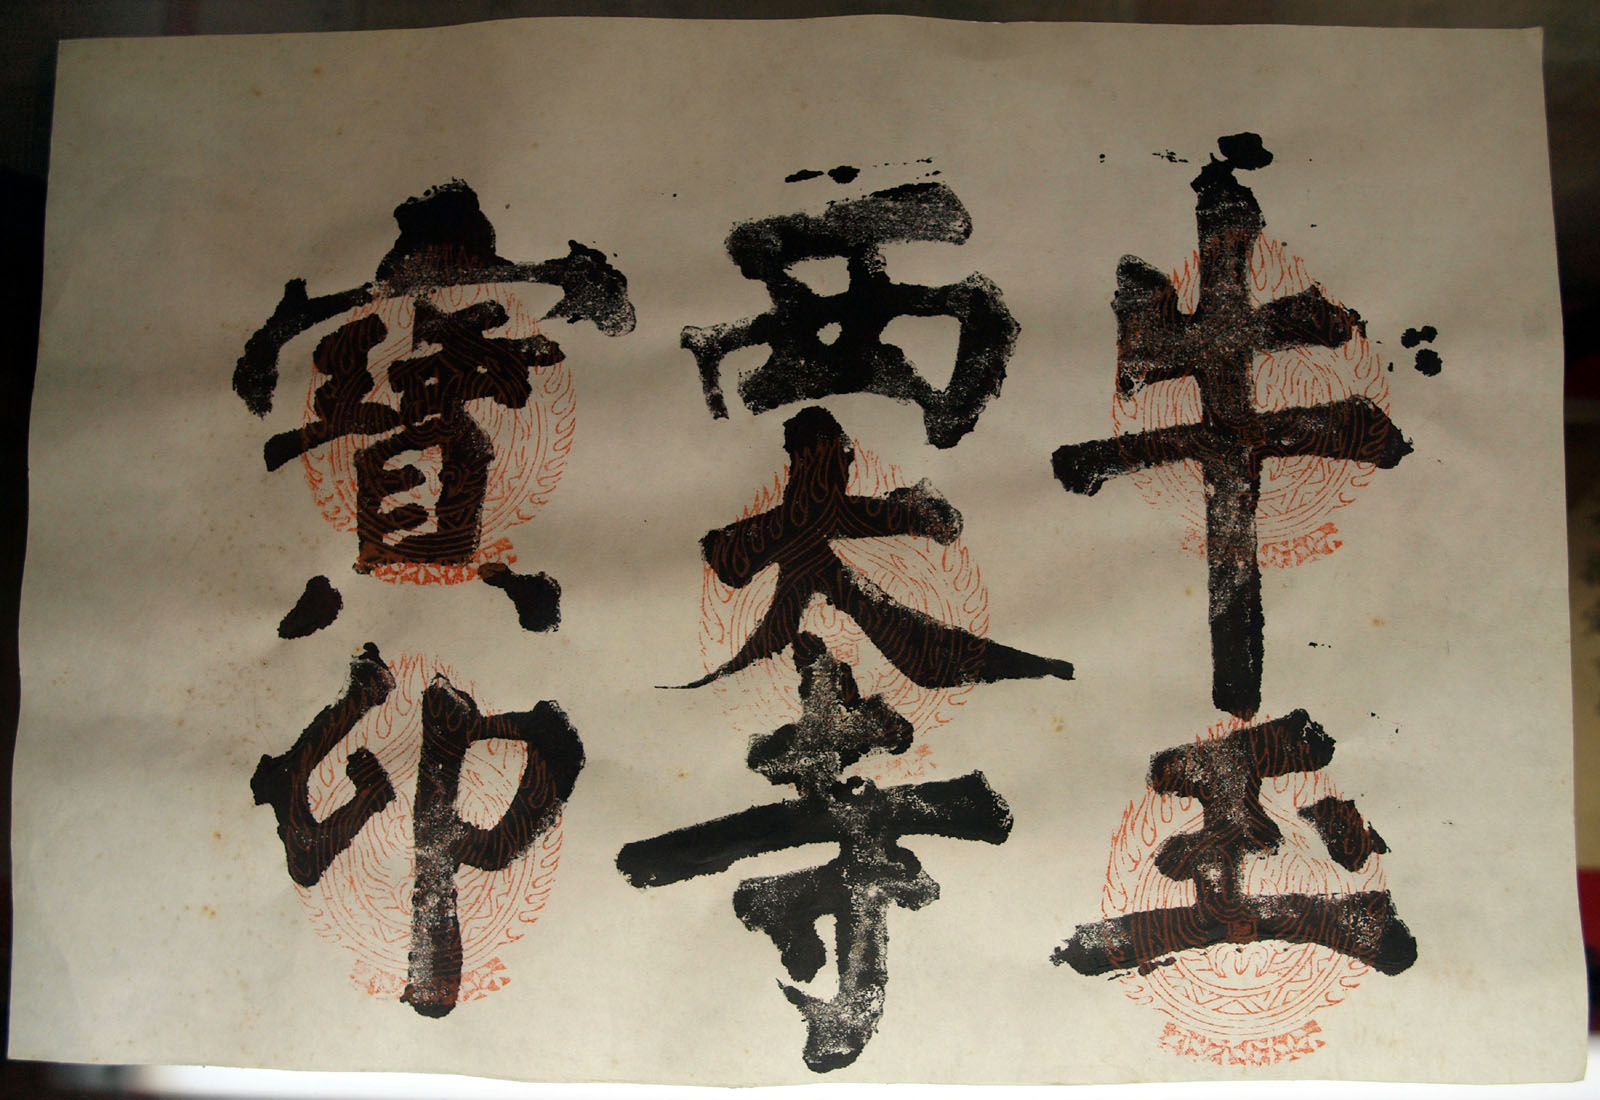 牛玉
西大寺
寶印